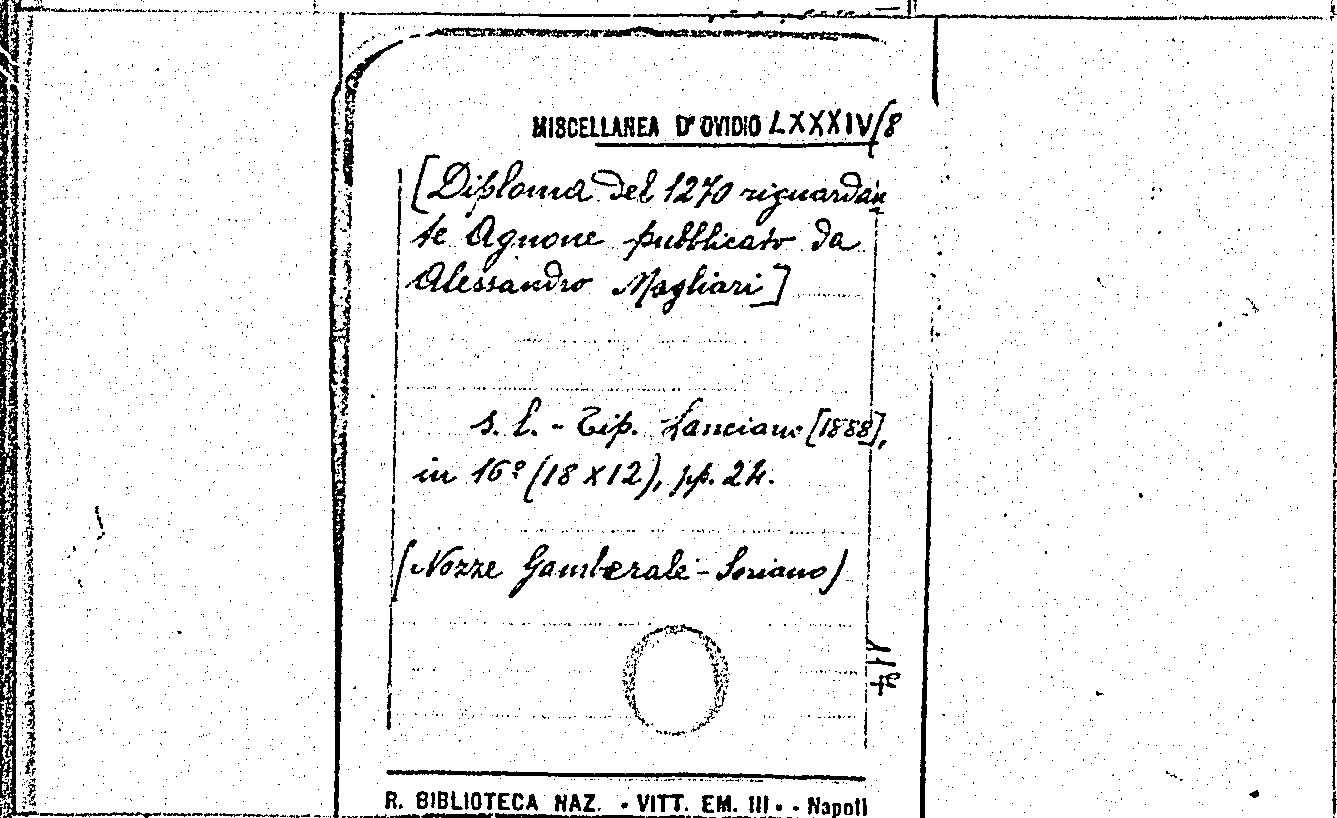 MISCELLANEA D'OVIDIO LXXXIV/8
[Diploma del 1270 riguardan
te Agnone pubblicato da
Alessandro Magliari]
s. l. - Tip. Lanciano [1888],
in 16º (18 x 12), pp. 24.
(Nozze Gamberale - Soriano)
R. BIBLIOTECA NAZ. - VITT. EM. III - - Napoli